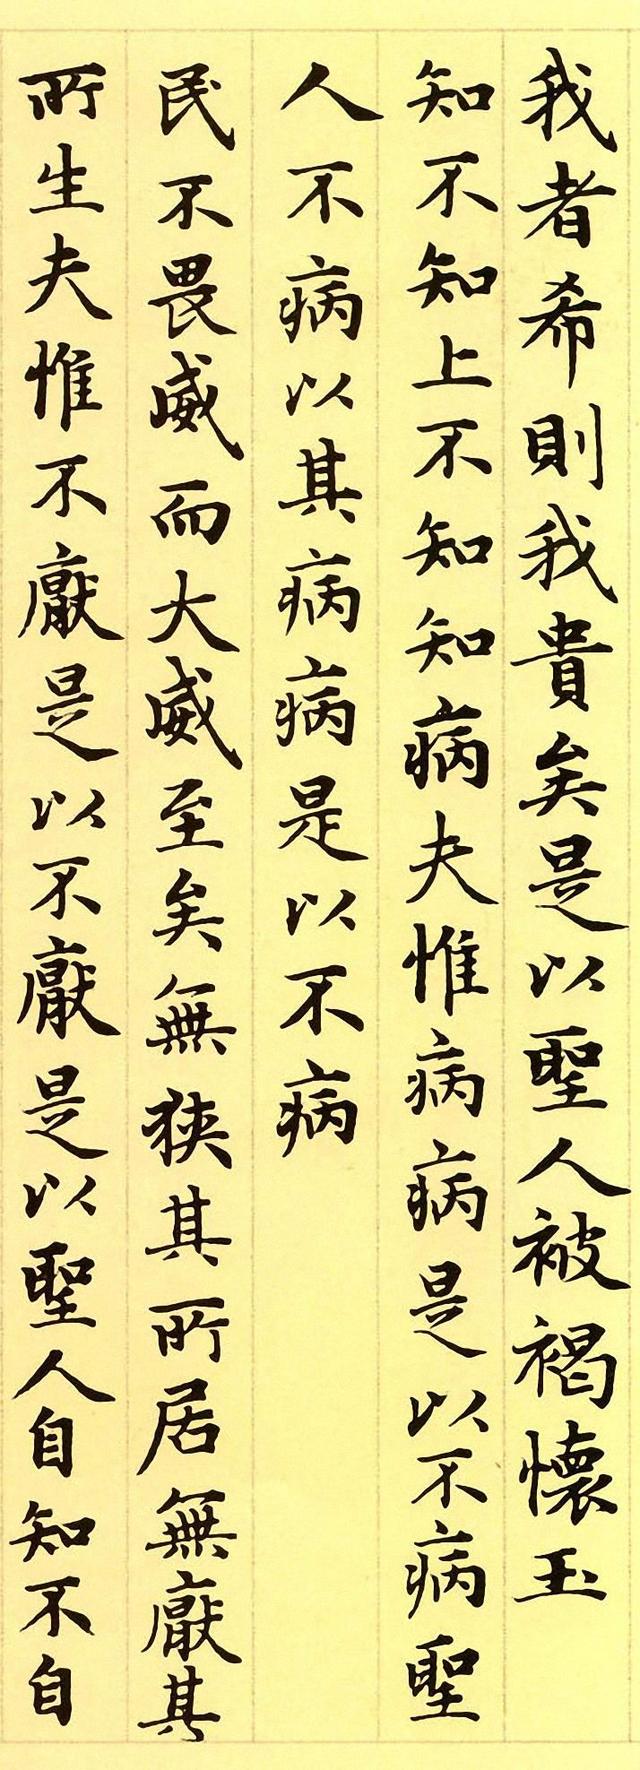 我者希則我貴矣是以聖人被褐懷玉
知不知上不知知病夫惟病病是以不病聖
人不病以其病病是以不病
民不畏威而大威至矣無狹其所居無厭其
所生夫惟不厭是以不厭是以聖人自知不自